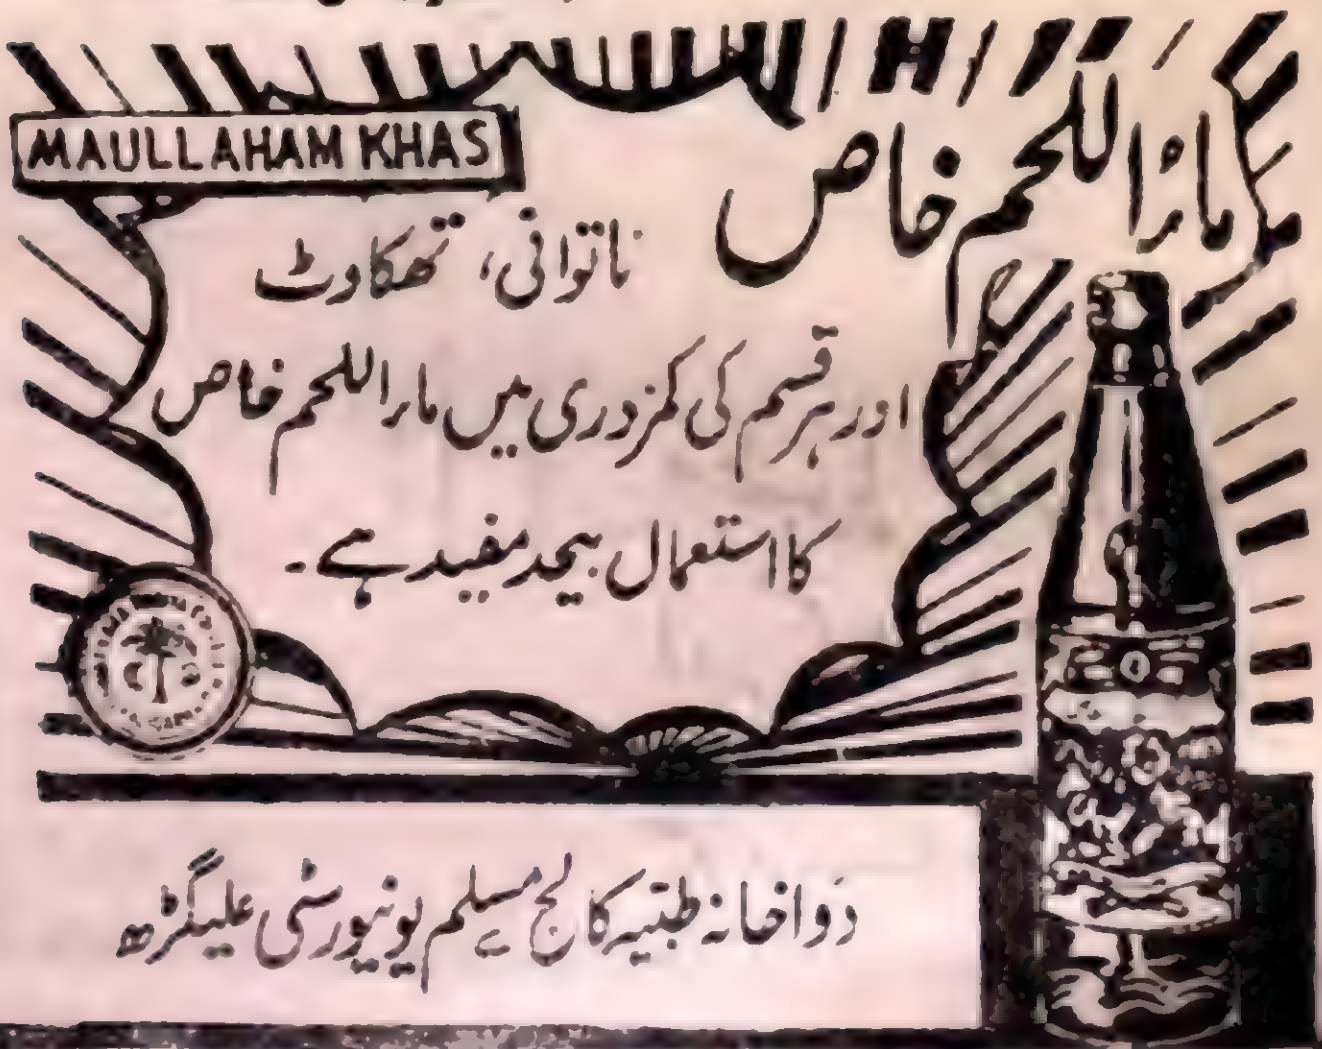 MAULLAHAM KHAS
ماءُ اللحم خاص
ناتوانی، تھکاوٹ
اور ہر قسم کی کمزوری میں ماء اللحم خاص
کا استعمال بیحد مفید ہے۔
دواخانہ طبیہ کالج مسلم یونیورسٹی علیگڑھ